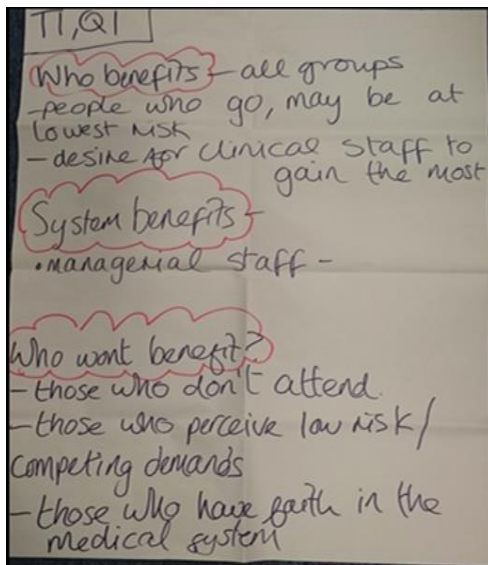 T1, Q1
Who benefits - all groups
- people who go, may be at
lowest risk
- desire for clinical staff to
gain the most
System benefits -
• managerial staff -
Who wont benefit?
- those who don't attend.
- those who perceive low risk /
competing demands
- those who have faith in the
medical system